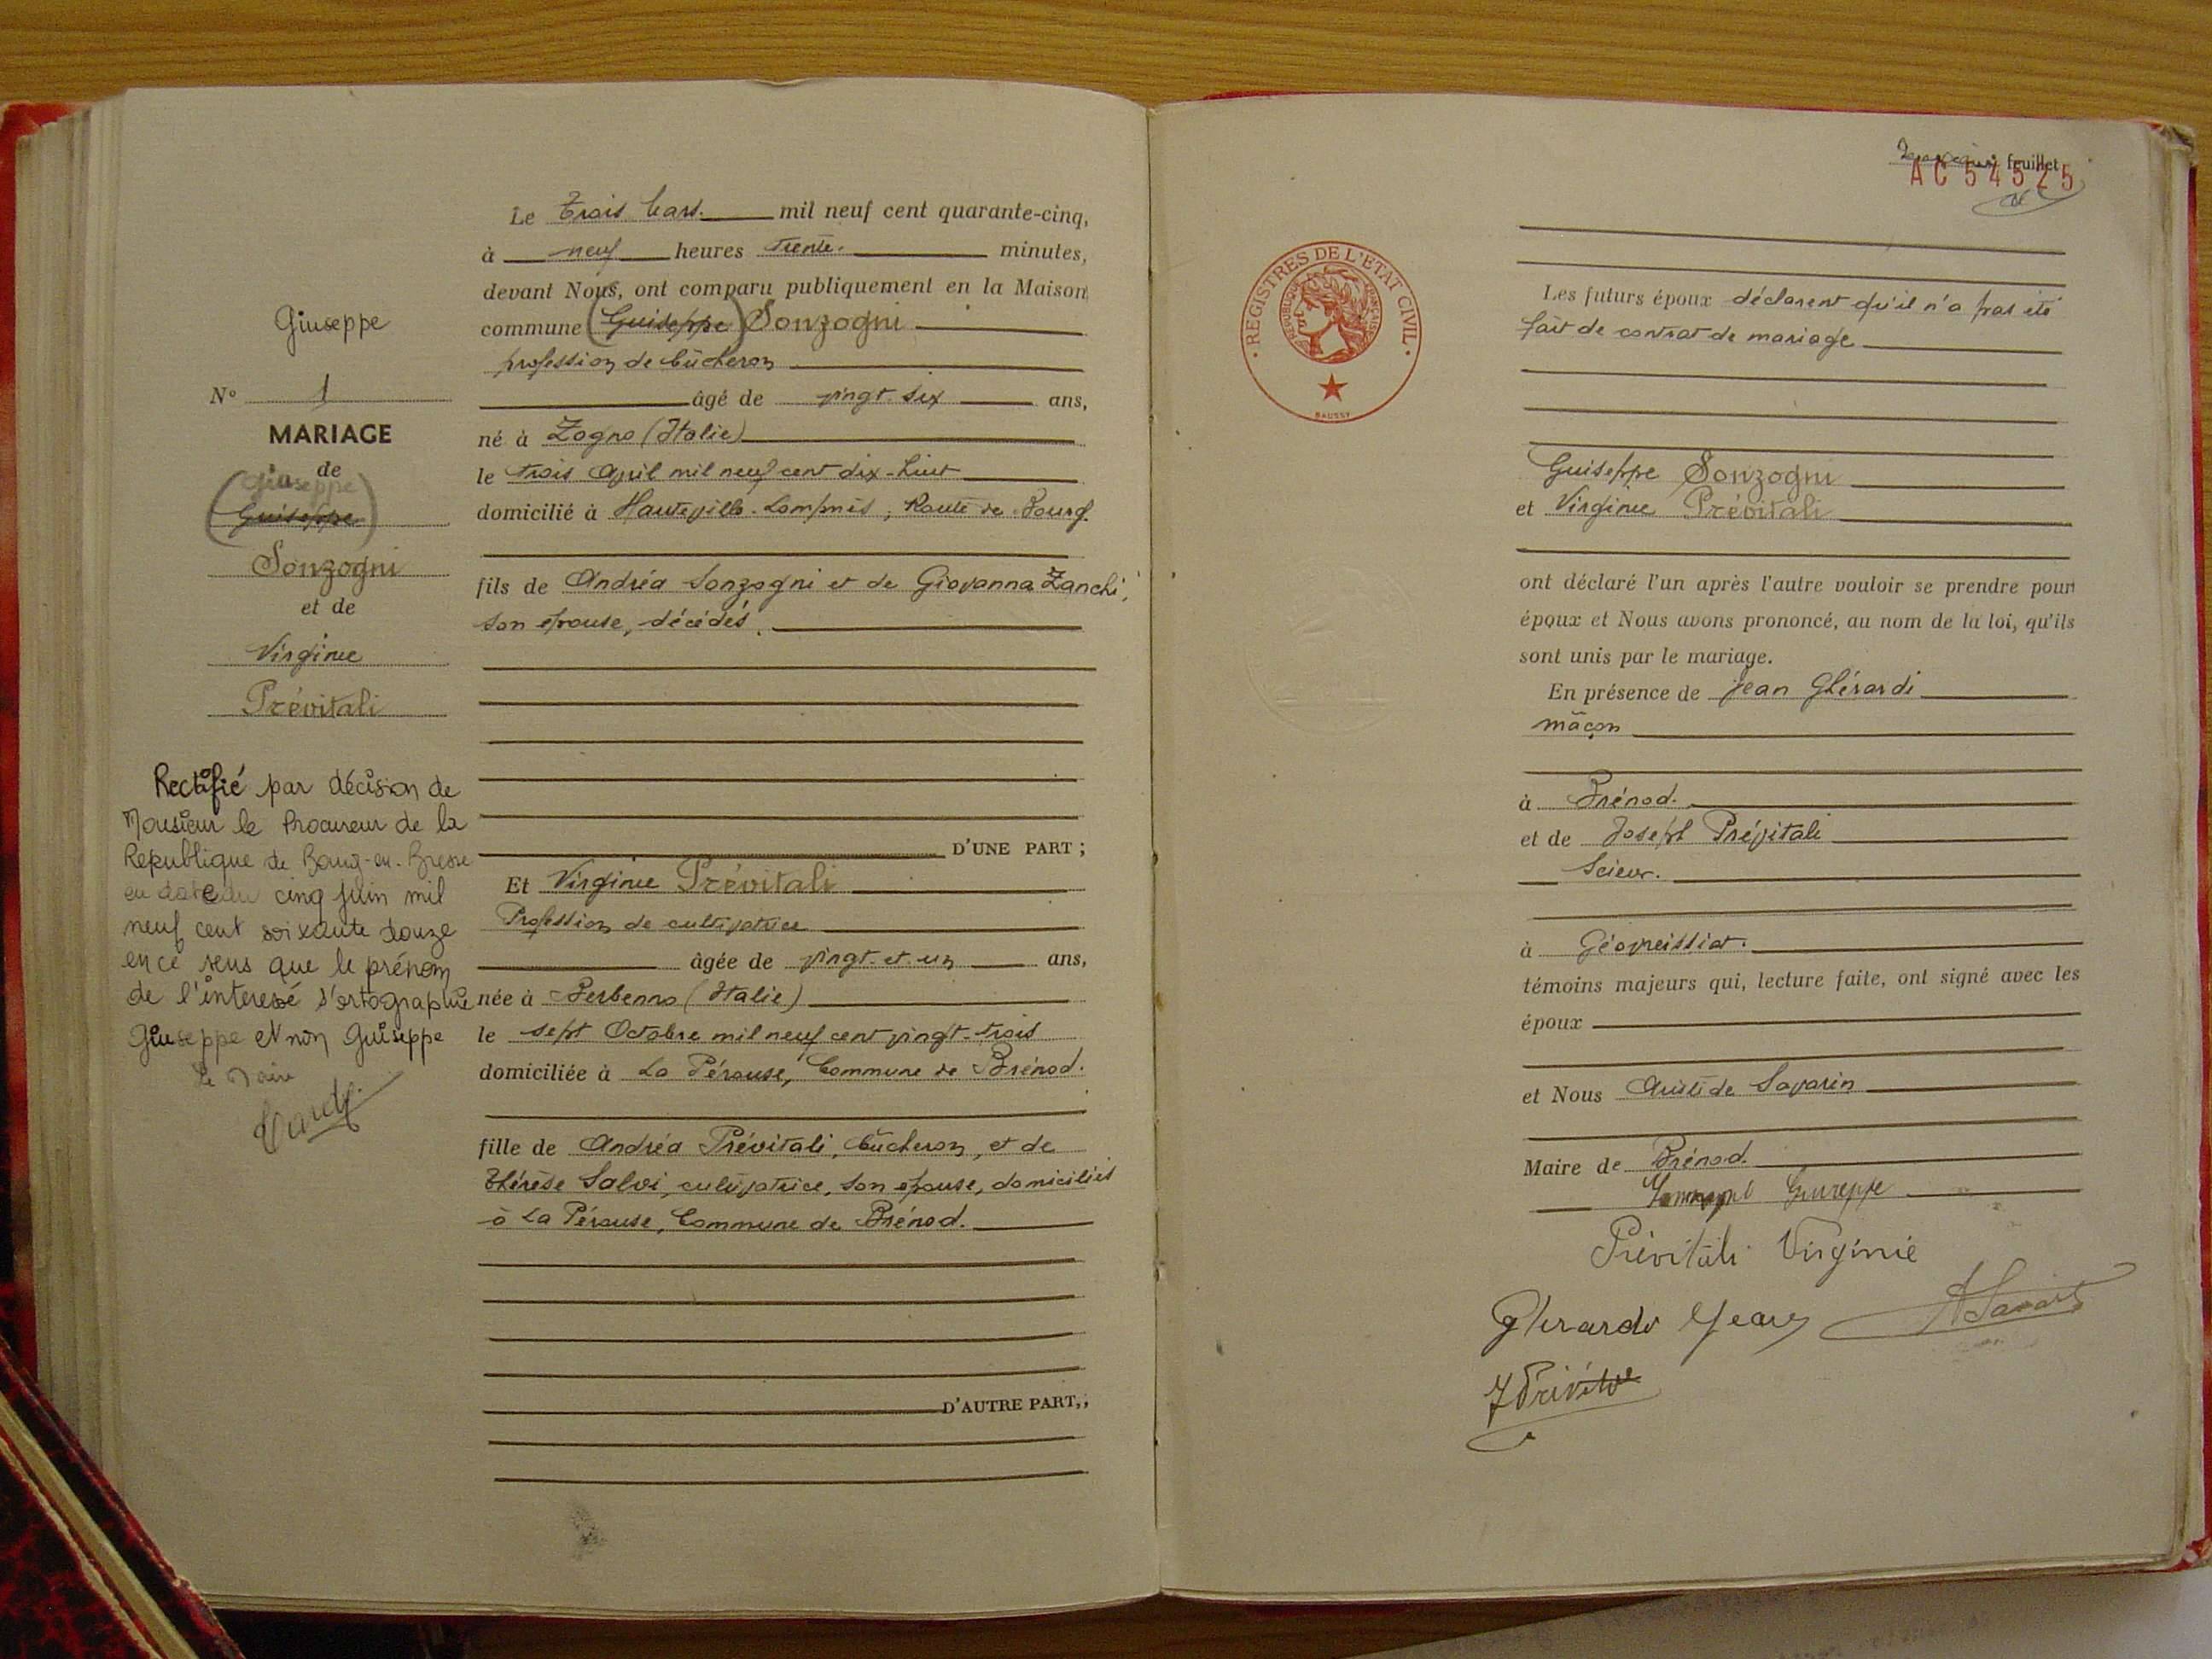 Le Trois Mars. mil neuf cent quarante-cinq,
à neuf heures trente. minutes,
devant Nous, ont comparu publiquement en la Maison
commune (Guiseppe) Sonzogni
profession de bûcheron
âgé de vingt-six ans,
né à Zogno (Italie)
le trois Avril mil neuf cent dix-huit
domicilié à Hauteville-Lompnès, Route de Bourg.
fils de Andréa Sonzogni et de Giovanna Zanchi,
son épouse, décédés.
D'UNE PART ;
Et Virginie Prévitali
Profession de cultivatrice
âgée de vingt-et-un ans,
née à Berbenno (Italie)
le sept Octobre mil neuf cent vingt-trois
domiciliée à La Pérouse, Commune de Brénod.
fille de Andréa Prévitali, bûcheron, et de
Thérèse Salvi, cultivatrice, son épouse, domiciliés
à La Pérouse, Commune de Brénod.
D'AUTRE PART,;
Giuseppe
N° 1
MARIAGE
de
Giuseppe
(Guiseppe)
Sonzogni
et de
Virginie
Prévitali
Rectifié par décision de
Monsieur le Procureur de la
République de Bourg-en-Bresse
en date du cinq juin mil
neuf cent soixante douze
en ce sens que le prénom
de l'interessé s'ortographie
Giuseppe et non Guiseppe
Le Maire
feuillet
AC 54525
REGISTRES DE L'ÉTAT CIVIL
RÉPUBLIQUE FRANÇAISE
BAUSSY
Les futurs époux déclarent qu'il n'a pas été
fait de contrat de mariage
Guiseppe Sonzogni
et Virginie Prévitali
ont déclaré l'un après l'autre vouloir se prendre pour
époux et Nous avons prononcé, au nom de la loi, qu'ils
sont unis par le mariage.
En présence de Jean Ghérardi
mâçon
à Brénod.
et de Joseph Prévitali
Scieur.
à Géovreissiat.
témoins majeurs qui, lecture faite, ont signé avec les
époux
et Nous Aristide Savarin
Maire de Brénod.
Giuseppe
Prévitali Virginie
Gherardi Jean
A Savarin